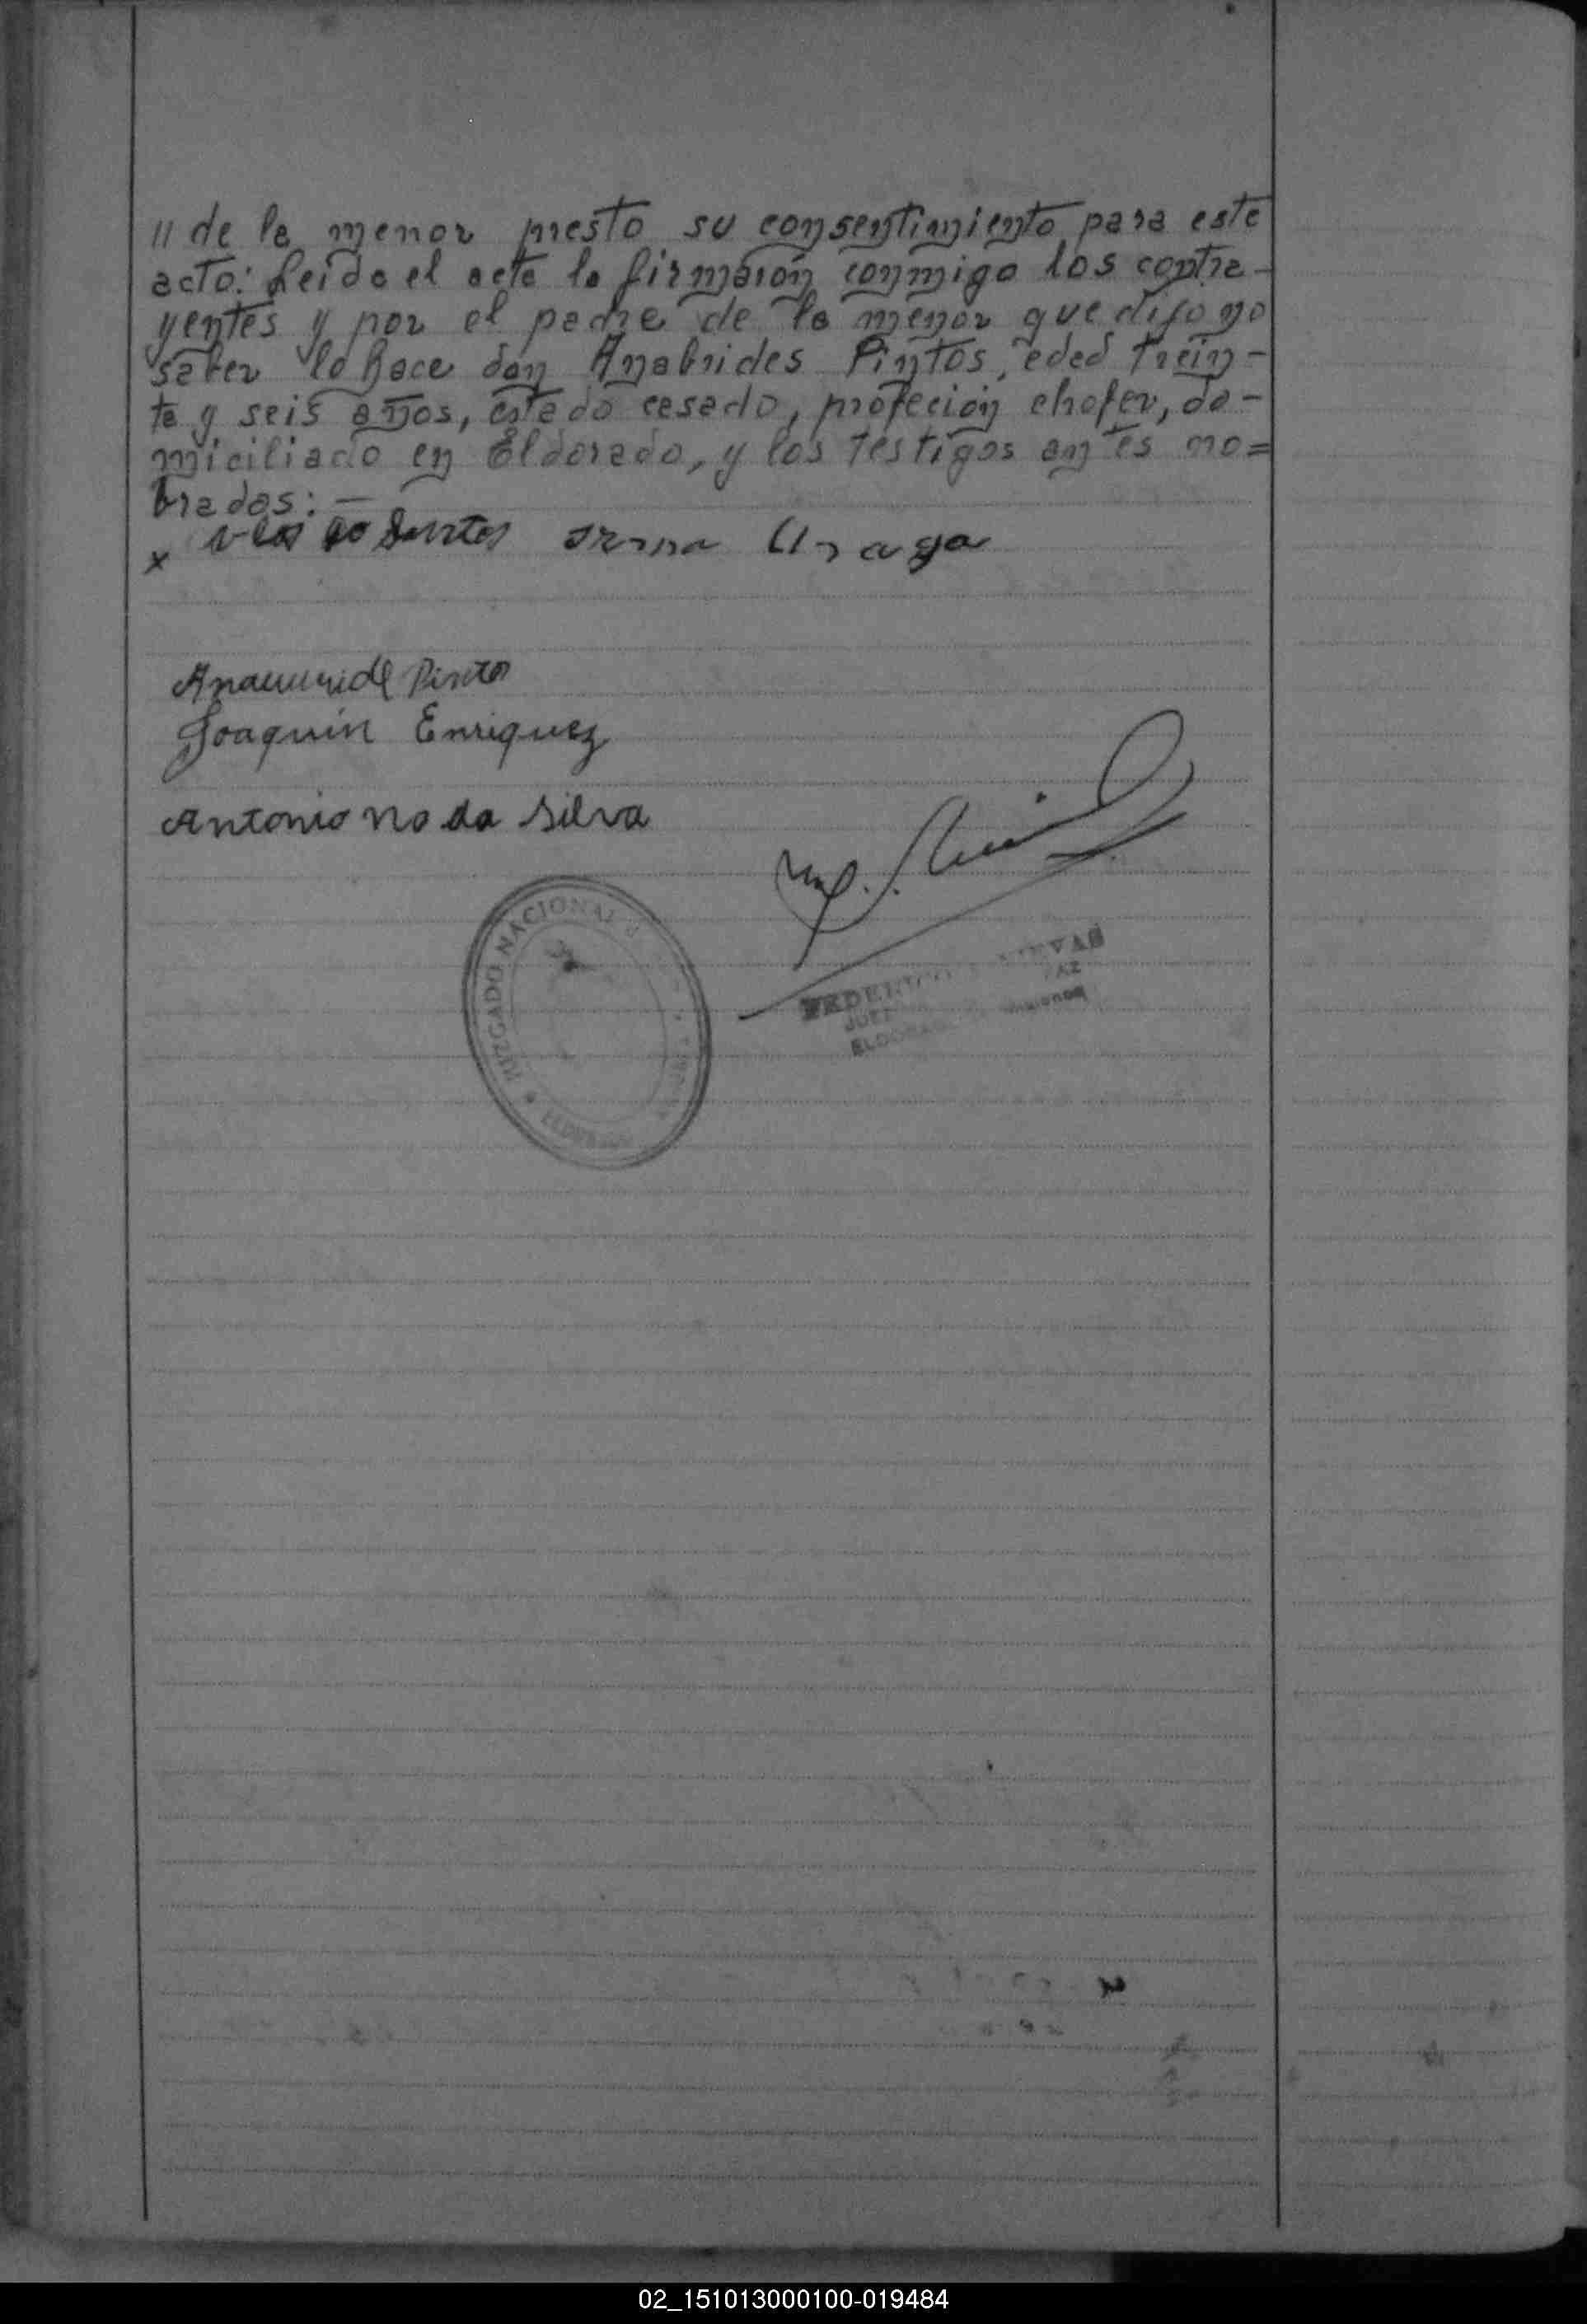 // de la menor presto su consentimiento para este
acto: Leida el acta la firmaron conmigo los contra-
yentes y por el padre de la menor que dijo no
saber lo hace don Anabrides Pintos, edad trein-
ta y seis años, estado casado, profecion chofer, do-
miciliado en Eldorado, y los testigos antes no=
brados: —
x Santos Irma
Pintos
Joaquin Enriquez
Antonio no da Silva
JUZGADO NACIONAL
FEDERICO
JUEZ
ELDORADO Misiones
02_151013000100-019484